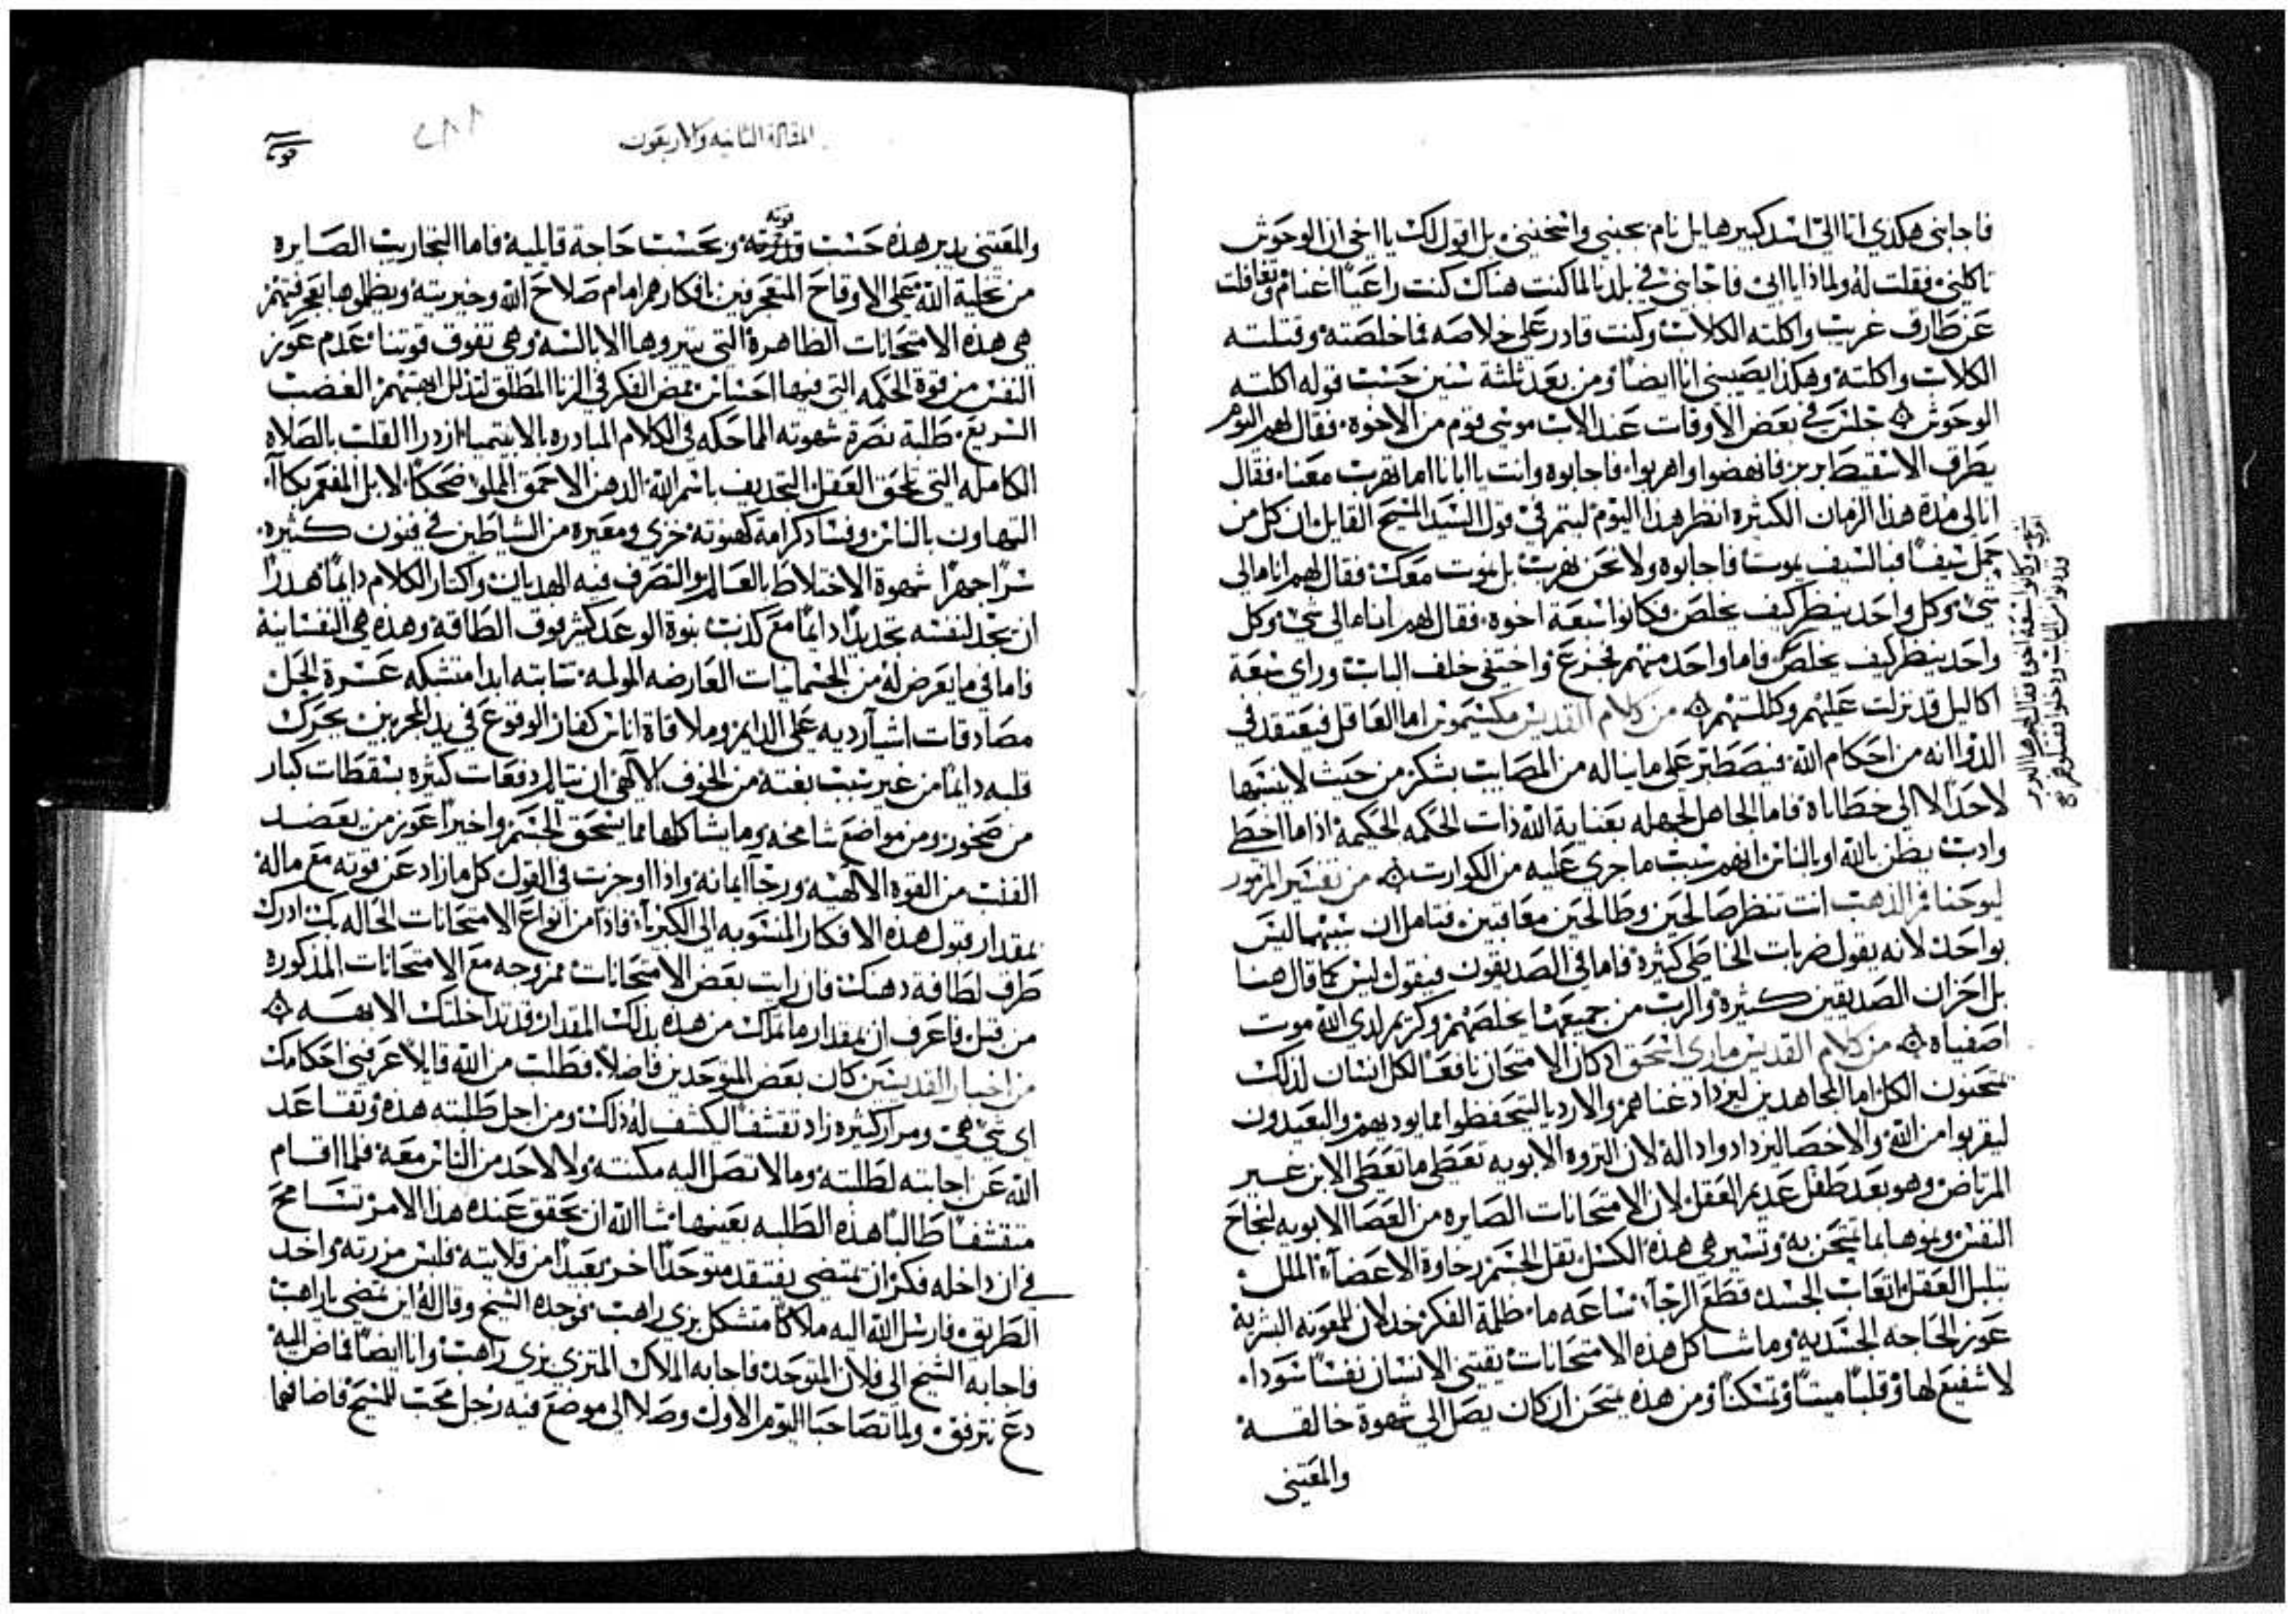 فاجابني هكذي انا الي اسد كبير هايل نام بجنبي واسخنني بل اقول لك يا اخي ان الوحوش
تاكلني فقلت له ولماذا يا ابي فاجابني في بلدنا لما كنت هناك كنت راعيًا اغنام وتغافلت
عن طارق غريب واكلته الكلاب وكنت قادر علي خلاصه فما خلصته وقتلته
الكلاب واكلته وهكذا يصيبني انا ايضًا ومن بعد ثلثة سنين حسب قوله اكلته
الوحوش جلس في بعض الاوقات عند الاب موسي قوم من الاخوة فقال لهم اليوم
يطرق الاسقيط بربر فانهضوا واهربوا فاجابوه وانت يا ابانا اما تهرب معنا فقال
انا لي مدة هذا الزمان الكثيره انظر هذا اليوم ليتم في قول السيد المسيح القايل ان كل من
حمل سيفًا فبالسيف يموت فاجابوه ولا نحن نهرب بل نموت معك فقال لهم انا مالي
شي وكل واحد ينظر كيف يخلص فكانوا سبعة اخوه فقال لهم انا مالي شي وكل
واحد ينظر كيف يخلص فاما واحد منهم فجزع واختفي خلف الباب وراي سبعة
اكاليل قد نزلت عليهم وكللتهم من كلام القديس مكسيموس اما العاقل فيعتقد في
الدوا انه من احكام الله فيصطبر علي ما يناله من المصايب بشكر من حيث لا ينسبها
لاحد الا الي خطاياه فاما الجاهل لجهله بعناية الله ذات الحكمه الحكيمة اذا ما اخطي
وادب يظن بالله او بالناس انهم سبب ما جري عليه من الكوارث من تفسير المزمور
ليوحنا فم الذهب انت تنظر صالحين وطالحين معاقبين فتامل ان سببهما ليس
بواحد لانه يقول ضربات الخاطي كثيرة فاما في الصديقون فيقول ليس كما قال هنا
بل احزان الصديقين كثيرة والرب من جميعها يخلصهم وكريم لدي الله موت
اصفياه من كلام القديس ماري اسحق اذ كان الامتحان نافعًا لكل انسان لذلك
يمتحنون الكل اما المجاهدين ليزداد غناهم والارديا ليتحفظوا مما يوديهم والبعيدون
ليقربوا من الله والاخصا ليزدادوا دالة لان الثروه الابويه تعطي ما تعطي الابن غير
المرتاض وهو بعد طفل عديم العقل لان الامتحانات الصايره من العصا الابويه لنجاح
النفس ونموها بما تمتحن به وتسير هي هذه الكسل ثقل الجسم رخاوة الاعضآء الملل
تبلبل العقل اتعاب الجسد قطع الرجآء ساعه ما ظلمة الفكر خذلان المعونه البشرية
عوز الحاجه الجسديه وما شاكل هذه الامتحانات يقتني الانسان نفسًا سودا
لا شفيع لها وقلبًا ميتًا وتمسكنًا ومن هذه يمتحن ان كان يصل الي شهوة خالقه
والمقتني
وكانوا سبعة اخوه فقال لهم هوذا البربر
ودنوا من الباب ودخلوا فقتلوهم
المقالة الثانيه والاربعون
والمقتني يدبر هذه حسب قوته وبحسب حاجة قابليته فاما التجاريب الصايرة
من تخلية الله علي الاوقاح المتعجرفين بافكارهم امام صلاح الله وخيريته ويظلموها بعجرفتهم
هي هذه الامتحانات الظاهرة التي يثيروها الابالسه وهي تفوق قوتنا عدم عوز
النفس من قوة الحكمه التي فيها احساس مض الفكر في الزنا المطلق لتذلل ابهتهم الغضب
السريع طلبة نصرة شهوته المماحكه في الكلام المبادره بالانتهار ازدرا القلب بالصلاه
الكامله التي تلحق العقل التجديف باسم الله الذهن الاحمق المملو ضحكًا لا بل المفعم بكآءً
التهاون بالناس وفساد كرامة كهنوته خزي ومعيره من الشياطين في فنون كثيره
سرًا جهرًا شهوة الاختلاط بالعالم والتصرف فيه الهديان واكثار الكلام دايمًا هدرًا
ان يجد لنفسه تجديدًا دايمًا مع كذب بنوة الوعد كثر فوق الطاقة وهذه هي النفسانية
فاما في ما يعرض له من الجسمانيات العارضه المولمه تتابته ابدا متشبكه عسرة الحل
مصادقات اشرآ رديه علي الدايم وملاقاة اناس كفار الوقوع في يد المجربين تحرك
قلبه دايمًا من غير سبب بغتة من الخوف الالهي ان يتالم دفعات كثره بسقطات كبار
من صخور ومن مواضع شامخه وما يشاكلها مما يسحق الجسم واخيرًا عوز من يعضد
القلب من القوه الالهيه ورجآ ايمانه واذا اوجزت في القول كل ما زاد عن قوته مع ماله
بمقدار قبول هذه الافكار المنسوبه الي الكبريآ فاذا من انواع الامتحانات الحاله بك ادرك
طرق لطافة دهنك فان رايت بعض الامتحانات ممزوجه مع الامتحانات المذكوره
من قبل فاعرف ان بمقدار ما نالك من هذه بذلك المقدار قد تداخلتك الابهه
من اخبار القديسين كان بعض المتوحدين فاضلًا فطلب من الله قايلًا عرفني احكامك
اي شي هي ومرار كثيره زاد تقشفًا ليكشف له ذلك ومن اجل طلبته هذه وتقاعد
الله عن اجابته لطلبته وما لا تصل اليه مكنته ولا لاحد من الناس معه فلما اقام
متقشفًا طالبًا هذه الطلبه بعينها شا الله ان يحقق عنده هذا الامر تسامح
في ان داخله فكر ان يمتضي يفتقد متوحدًا اخر بعيدًا من قلايته فلبس مزرته واخد
الطريق فارسل الله اليه ملاكًا متشكل بزي راهب فوجده الشيخ وقال له اين تمضي يا راهب
فاجابه الشيخ الي فلان المتوحد فاجابه الملاك المتزي بزي راهب وانا ايضًا ماض اليه
دع نترفق ولما تصاحبا اليوم الاول وصلا الي موضع فيه رجل محب للمسيح فاضافهما